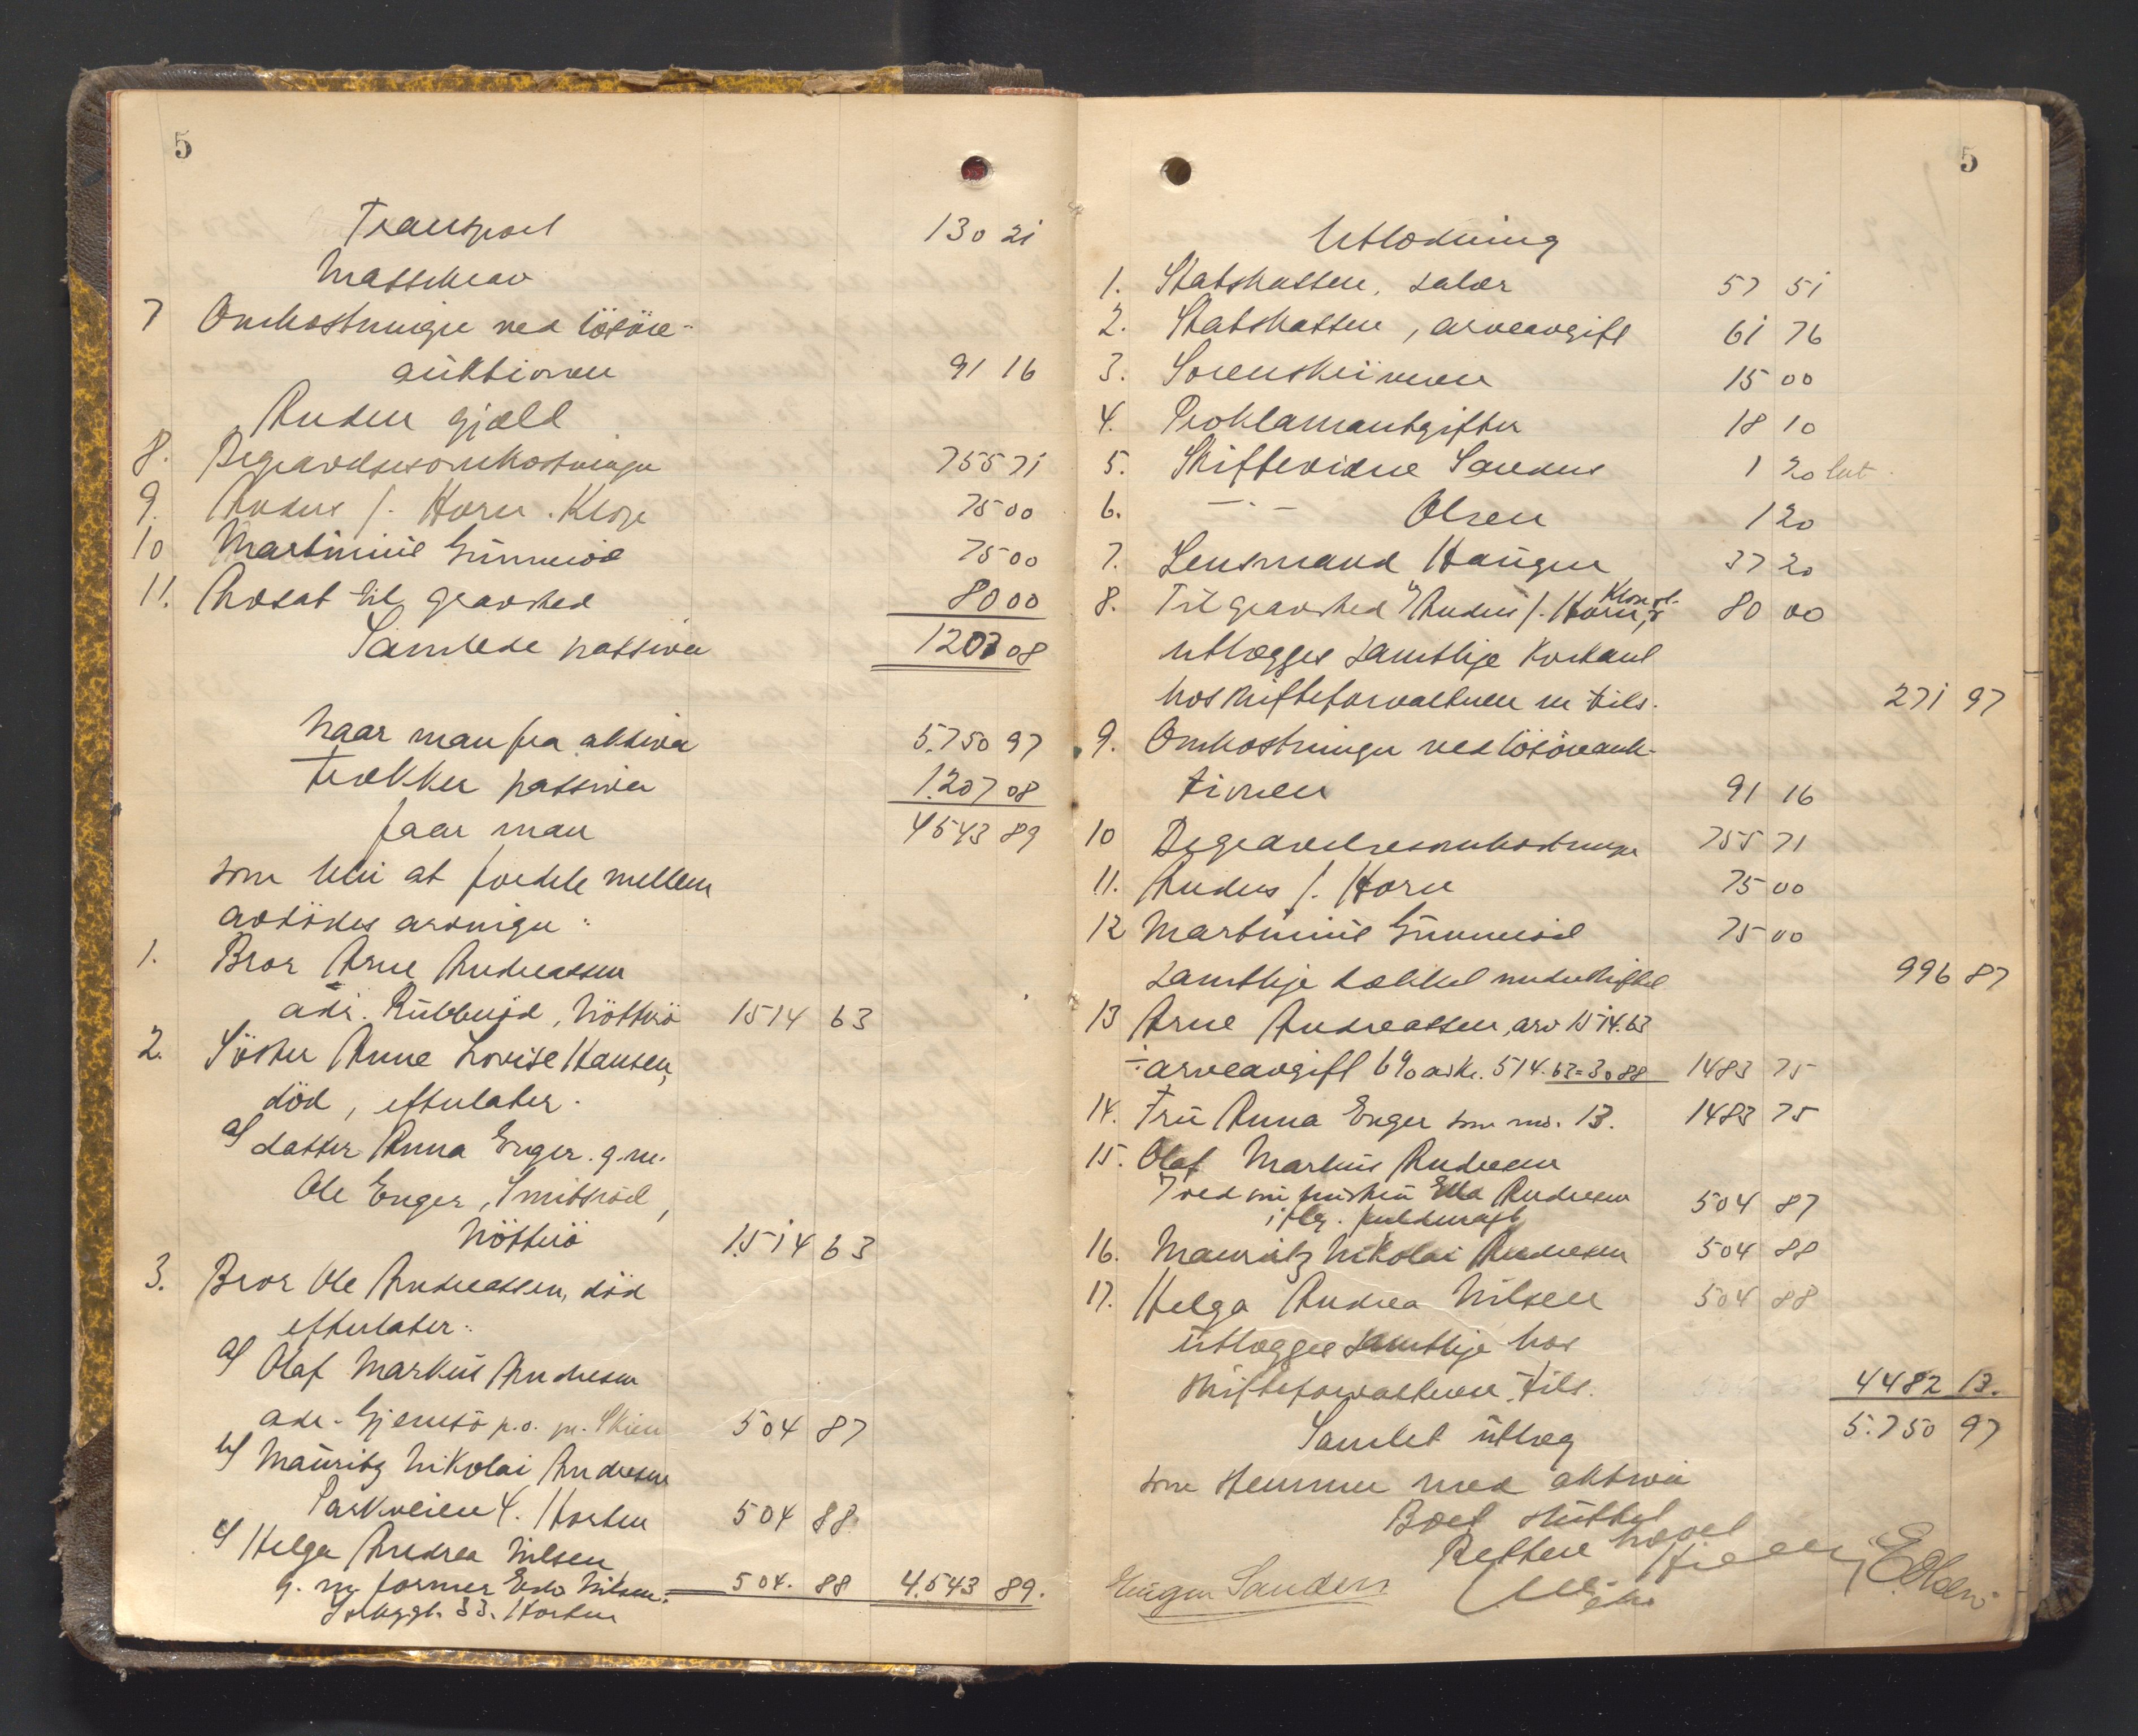 5
Transport 130 21
Massekrav
7 Omkostninger ved lösöre-
auktionen 91 16
Anden gjæld
8. Begravelsesomkostninger 755 71
9. Anders J. Horn. Klop 75 00
10 Martinius Gunnerød 75 00
11. Avsat til gravsted 80 00
Samlede passiva 1207 08
Naar man fra aktiva 5.750 97
trækker passiva 1.207 08
faar man 4543 89
som blir at fordele mellem
avdödes arvinger:
1. Bror Arne Andreassen
adr. Rubberød, Nötterö 1514 63
2. Söster Anne Lovise Hansen,
död, efterlater.
a) datter Anna Enger. g.m.
Ole Enger, Smitsrød,
Nötterö 1514 63
3. Bror Ole Andreassen, död
efterlater:
a) Olaf Markus Andresen
adr. Gjemsö p.o. pr. Skien 504 87
b) Mauritz Nikolai Andresen
Parkveien 4. Horten 504 88
c) Helga Andrea Nilsen
g. m. former Nilsen.
504. 88 4.543 89.
33. Horten
5
Utlodning
1. Statskassen, salær 57 51
2. Statskassen, arveavgift 61 76
3. Sorenskriveren 15 00
4. Proklamautgifter 18 10
5. Skiftevidne Sanders 1 20
6. —·— Olsen 1 20
7. Lensmand Haugen 37 20
8. Til gravsted v/ Anders J. Horn, 80 00
utlægges samtlige kontant
hos skifteforvalteren m tils. 271 97
9. Omkostninger ved lösöreauk-
tionen 91 16
10 Begravelsesomkostninger 755 71
11. Anders J. Horn 75 00
12 Martinius Gunnerød 75 00
samtlige dækket under skiftet 996 87
13 Arne Andreassen, arv 1514.63
÷ arveavgift 6% av kr. 514.63 = 30 88 1483 75
14. Fru Anna Enger som no. 13. 1483 75
15. Olaf Markus Andresen
ved sin hustru Ella Andresen 504 87
iflg. fuldmagt
16. Mauritz Nikolai Andresen 504 88
17. Helga Andrea Nilsen 504 88
utlægges samtlige hos
skifteforvalteren, tils. 4482 13.
Samlet utlæg 5.750 97
som stemmer med aktiva
Boet sluttet
Retten hævet
Eugen Sanders